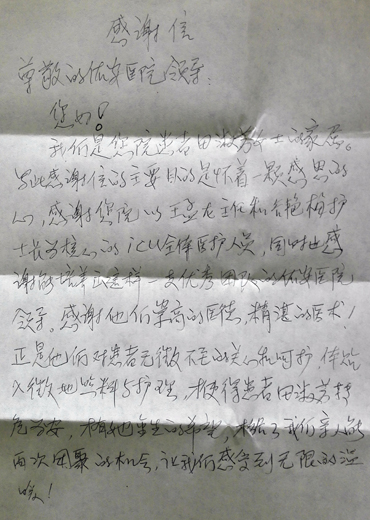 感谢信
尊敬的佑安医院领导:
您好!
我们是您院患者田淑芳女士的家属。
写此感谢信的主要目的是怀着一颗感恩的
心,感谢您院以王孟龙主任和名艳梅护
士长为核心的ICU全体医护人员,同时也感
谢能培养出这样一支优秀团队的佑安医院
领导。感谢他们崇高的医德,精湛的医术!
正是他们对患者无微不至的关心和呵护,体贴
入微地照料与护理,才使得患者田淑芳转
危为安,有了生的希望,给了我们亲人能
再次团聚的机会,让我们感受到无限的温
暖!